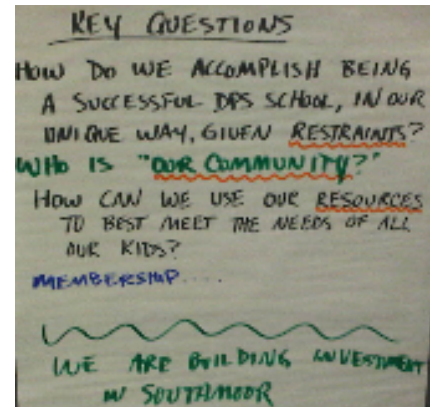 KEY QUESTIONS
HOW DO WE ACCOMPLISH BEING
A SUCCESSFUL DPS SCHOOL, IN OUR
UNIQUE WAY, GIVEN RESTRAINTS?
WHO IS "OUR COMMUNITY?"
HOW CAN WE USE OUR RESOURCES
TO BEST MEET THE NEEDS OF ALL
OUR KIDS?
MEMBERSHIP....
WE ARE BUILDING INVESTMENT
W/ SOUTHMOOR